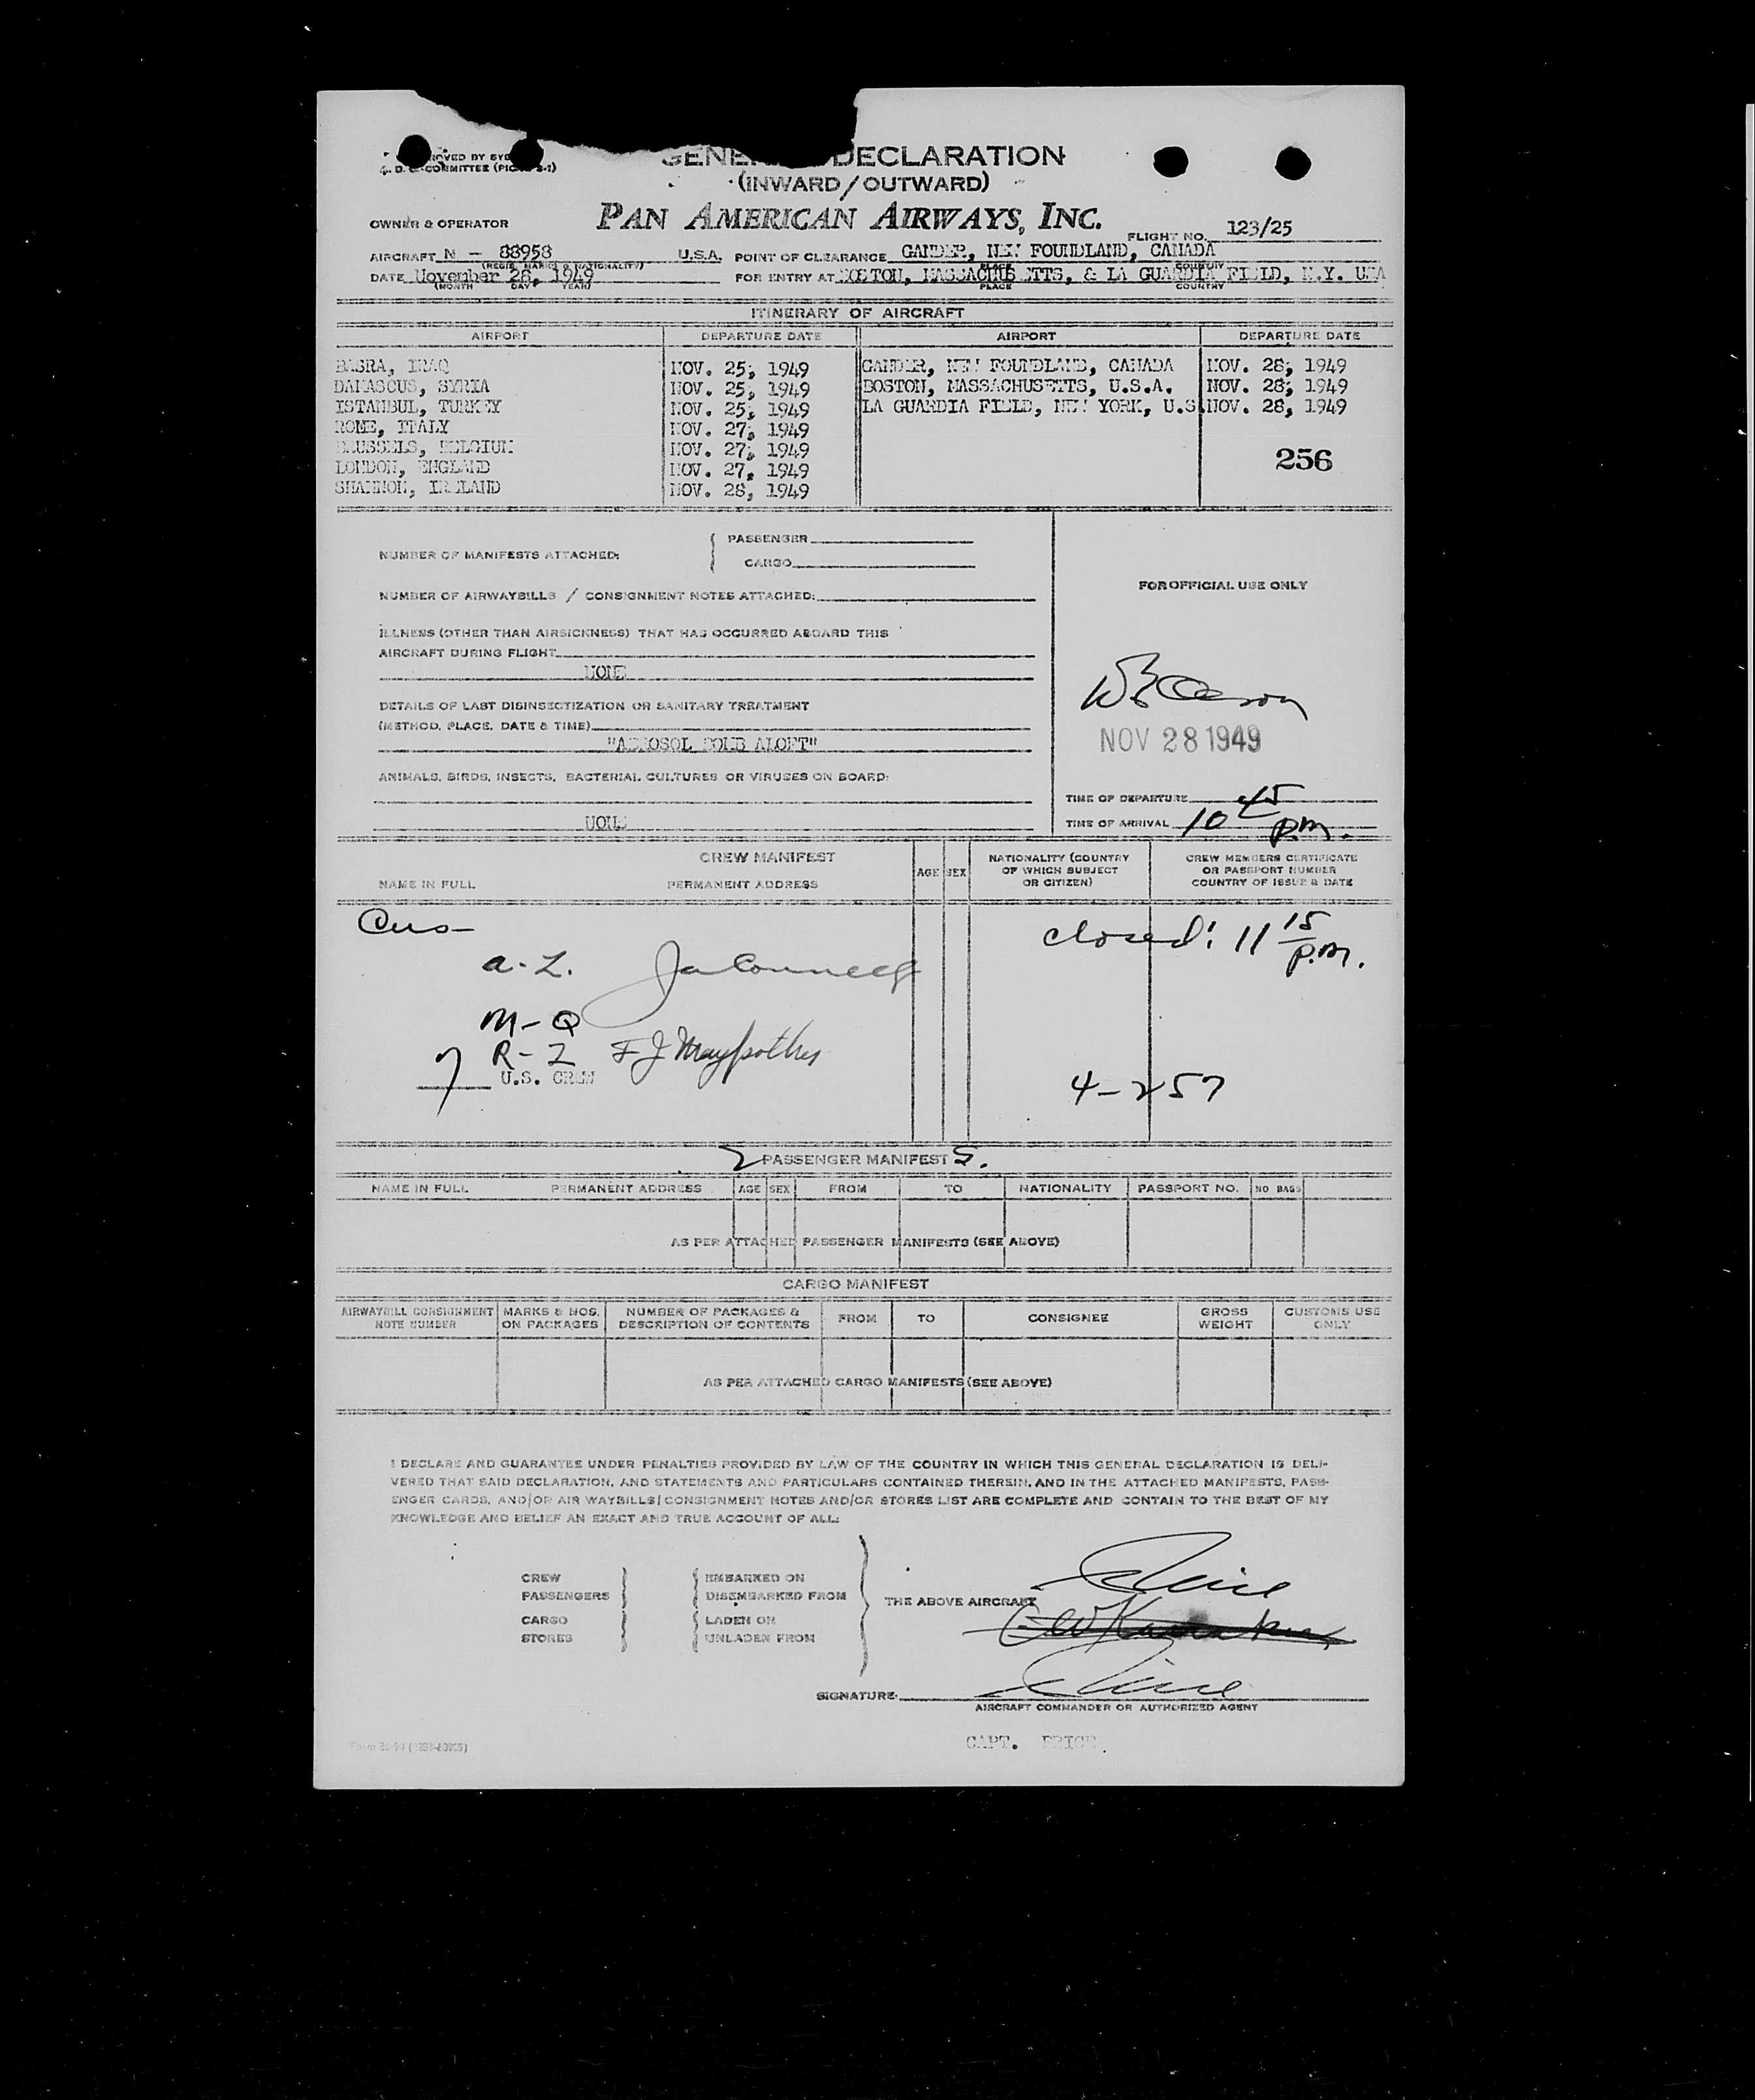 GENE DECLARATION
(INWARD/OUTWARD)
COMMITTEE
OWNER & OPERATOR PAN AMERICAN AIRWAYS, INC. FLIGHT NO. 123/25
AIRCRAFT N - 88958 U.S.A. POINT OF CLEARANCE GANDER, NEW FOUNDLAND, CANADA
(REGIS. MARKS & NATIONALITY) PLACE COUNTRY
DATE November 28, 1949 FOR ENTRY AT BOSTON, MASSACHUSETTS, & LA GUARDIA FIELD, N.Y. USA
(MONTH DAY YEAR) PLACE COUNTRY
ITINERARY OF AIRCRAFT
AIRPORT DEPARTURE DATE AIRPORT DEPARTURE DATE
BASRA, IRAQ NOV. 25, 1949 GANDER, NEW FOUNDLAND, CANADA NOV. 28, 1949
DAMASCUS, SYRIA NOV. 25, 1949 BOSTON, MASSACHUSETTS, U.S.A. NOV. 28, 1949
ISTANBUL, TURKEY NOV. 25, 1949 LA GUARDIA FIELD, NEW YORK, U.S. NOV. 28, 1949
ROME, ITALY NOV. 27, 1949
BRUSSELS, BELGIUM NOV. 27, 1949
LONDON, ENGLAND NOV. 27, 1949
SHANNON, IRELAND NOV. 28, 1949
256
NUMBER OF MANIFESTS ATTACHED: PASSENGER
CARGO
NUMBER OF AIRWAYBILLS / CONSIGNMENT NOTES ATTACHED:
FOR OFFICIAL USE ONLY
ILLNESS (OTHER THAN AIRSICKNESS) THAT HAS OCCURRED ABOARD THIS
AIRCRAFT DURING FLIGHT
NONE
DETAILS OF LAST DISINSECTIZATION OR SANITARY TREATMENT
(METHOD, PLACE, DATE & TIME)
"AEROSOL BOMB ALOFT"
NOV 28 1949
ANIMALS, BIRDS, INSECTS, BACTERIAL CULTURES OR VIRUSES ON BOARD:
NONE
TIME OF DEPARTURE
TIME OF ARRIVAL 10 45 p.m.
CREW MANIFEST
NAME IN FULL PERMANENT ADDRESS AGE SEX NATIONALITY (COUNTRY OF WHICH SUBJECT OR CITIZEN) CREW MEMBERS CERTIFICATE OR PASSPORT NUMBER COUNTRY OF ISSUE & DATE
closed: 11 15 p.m.
a-L.
M-Q
R-Z
7 U.S. CREW
4-257
2 PASSENGER MANIFEST S.
NAME IN FULL PERMANENT ADDRESS AGE SEX FROM TO NATIONALITY PASSPORT NO. NO BAGS
AS PER ATTACHED PASSENGER MANIFESTS (SEE ABOVE)
CARGO MANIFEST
AIRWAYBILL CONSIGNMENT NOTE NUMBER MARKS & NOS. ON PACKAGES NUMBER OF PACKAGES & DESCRIPTION OF CONTENTS FROM TO CONSIGNEE GROSS WEIGHT CUSTOMS USE ONLY
AS PER ATTACHED CARGO MANIFESTS (SEE ABOVE)
I DECLARE AND GUARANTEE UNDER PENALTIES PROVIDED BY LAW OF THE COUNTRY IN WHICH THIS GENERAL DECLARATION IS DELI-
VERED THAT SAID DECLARATION, AND STATEMENTS AND PARTICULARS CONTAINED THEREIN, AND IN THE ATTACHED MANIFESTS, PASS-
ENGER CARDS, AND/OR AIR WAYBILLS/CONSIGNMENT NOTES AND/OR STORES LIST ARE COMPLETE AND CONTAIN TO THE BEST OF MY
KNOWLEDGE AND BELIEF AN EXACT AND TRUE ACCOUNT OF ALL:
CREW EMBARKED ON
PASSENGERS DISEMBARKED FROM
THE ABOVE AIRCRAFT
CARGO LADEN ON
STORES UNLADEN FROM
SIGNATURE
AIRCRAFT COMMANDER OR AUTHORIZED AGENT
CAPT. PRICE